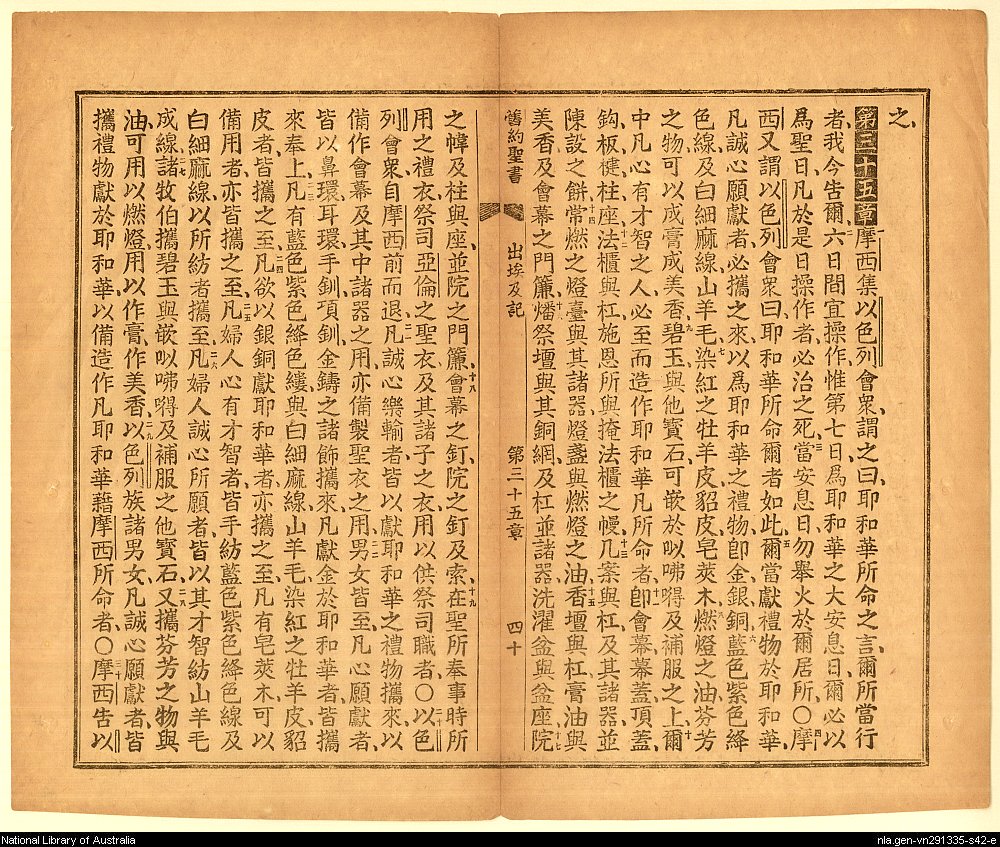 之
第三十五章摩西集以色列會衆謂之曰耶和華所命之言爾所當行
者我今告爾二六日間宜操作惟第七日爲耶和華之大安息日爾必以
爲聖日凡於是日操作者必治之死三當安息日勿舉火於爾居所〇四摩
西又謂以色列會衆曰耶和華所命爾者如此五爾當獻禮物於耶和華
凡誠心願獻者必攜之來以爲耶和華之禮物卽金銀銅六藍色紫色絳
色線及白細麻線山羊毛七染紅之牡羊皮貂皮皂莢木八燃燈之油芬芳
之物可以成膏成美香九碧玉與他寶石可嵌於㕥咈嘚及補服之上十爾
中凡心有才智之人必至而造作耶和華凡所命者十一卽會幕幕蓋頂蓋
鈎板楗柱座十二法櫃與杠施恩所與掩法櫃之幔十三几案與杠及其諸器並
陳設之餅十四常燃之燈臺與其諸器燈盞與燃燈之油十五香壇與杠膏油與
美香及會幕之門簾十六燔祭壇與其銅網及杠並諸器洗濯盆與盆座十七院
舊約聖書 出埃及記 第三十五章 四十
之幃及柱與座並院之門簾十八會幕之釘院之釘及索十九在聖所奉事時所
用之禮衣祭司亞倫之聖衣及其諸子之衣用以供祭司職者〇二十以色
列會衆自摩西前而退二一凡誠心樂輸者皆以獻耶和華之禮物攜來以
備作會幕及其中諸器之用亦備製聖衣之用二二男女皆至凡心願獻者
皆以鼻環耳環手釧項釧金鑄之諸飾攜來凡獻金於耶和華者皆攜
來奉上二三凡有藍色紫色絳色縷與白細麻線山羊毛染紅之牡羊皮貂
皮者皆攜之至二四凡欲以銀銅獻耶和華者亦攜之至凡有皂莢木可以
備用者亦皆攜之至二五凡婦人心有才智者皆手紡藍色紫色絳色線及
白細麻線以所紡者攜至二六凡婦人誠心所願者皆以其才智紡山羊毛
成線二七諸牧伯攜碧玉與嵌㕥咈嘚及補服之他寶石二八又攜芬芳之物與
油可用以燃燈用以作膏作美香二九以色列族諸男女凡誠心願獻者皆
攜禮物獻於耶和華以備造作凡耶和華藉摩西所命者〇三十摩西告以
National Library of Australia
nla.gen-vn291335-s42-e